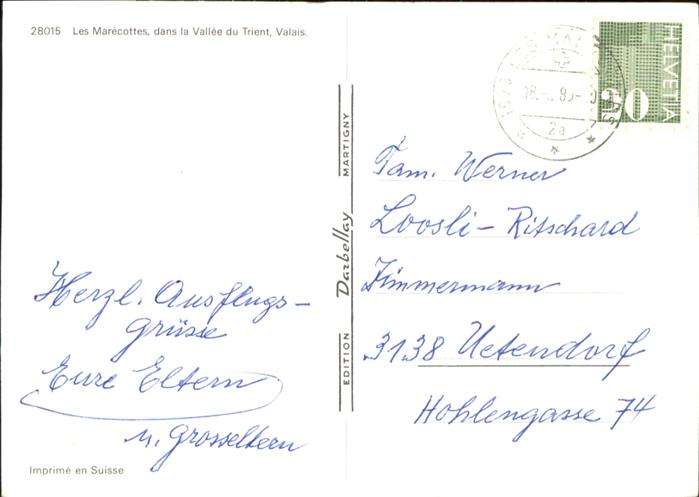 28015 Les Marécottes, dans la Vallée du Trient, Valais.
HELVETIA
20
Herzl. Ausflugs-
grüsse
Eure Eltern
u. Grosseltern
Imprimé en Suisse
EDITION Darbellay MARTIGNY
Fam. Werner
Loosli-Ritschard
Zimmermann
3138 Uetendorf
Hohlengasse 74